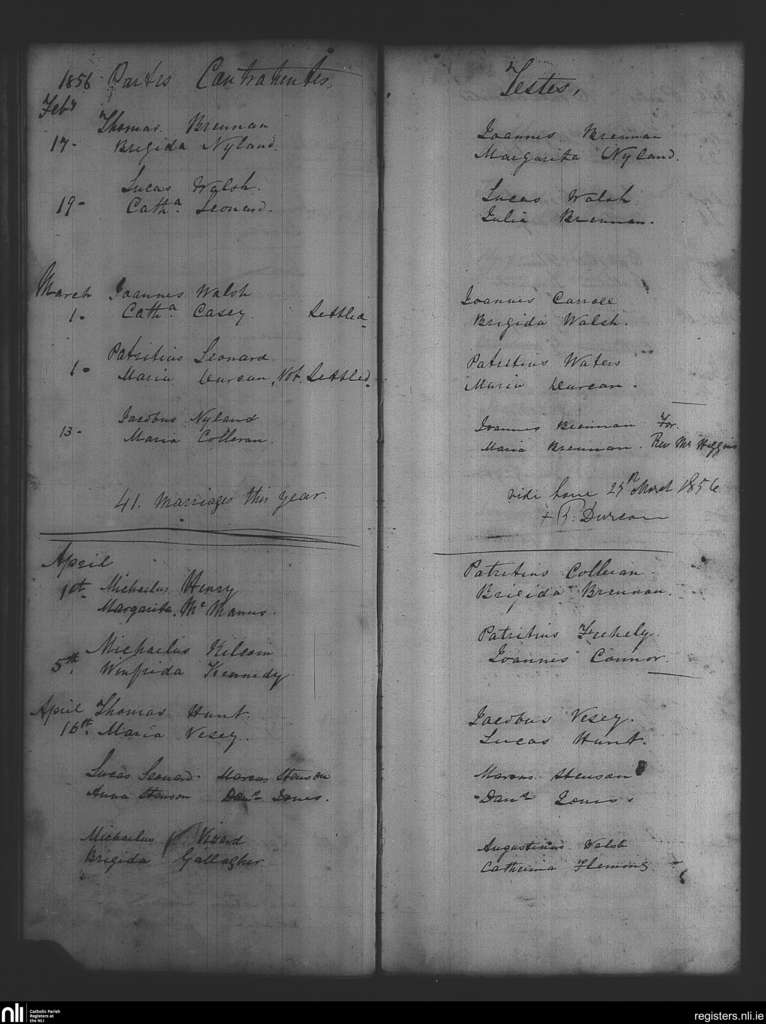 1856 Partes Contrahentes,
Feby
Thomas Brennan
17 - Brigida Nyland.
Lucas Walsh.
19 - Catha Leonard.
March Joannes Walsh
1 - Catha Casey Settled
Patritius Leonard
1 - Maria Durcan, Not Settled
Jacobus Nyland
13 - Maria Colleran.
41. Marriages this year.
April
1st Michaelus Henry
Margarita McManus.
Michaelus
5th Winfrida Kennedy
April Thomas Hunt.
16th Maria Vesey.
Lucas Leonard. Marcus Henson
Anna Henson Danl Jones.
Michaelus
Brigida Gallagher
Testes,
Joannes Brennan
Margarita Nyland.
Lucas Walsh
Julia Brennan.
Joannes Carroll
Brigida Walsh.
Patritius Waters
Maria Durcan.
Joannes Brennan For
Maria Brennan. Rev Mr Higgins
vidi hane 25th March 1856
+ P. Durcan
Patritius Colleran.
Brigida Brennan.
Patritius Feehely.
Joannes Connor.
Jacobus Vesey.
Lucas Hunt.
Marcus Henson
Danl Jones.
Augustinus Walsh
Catherina Fleming
nli Catholic Parish
Registers at
the NLI
registers.nli.ie